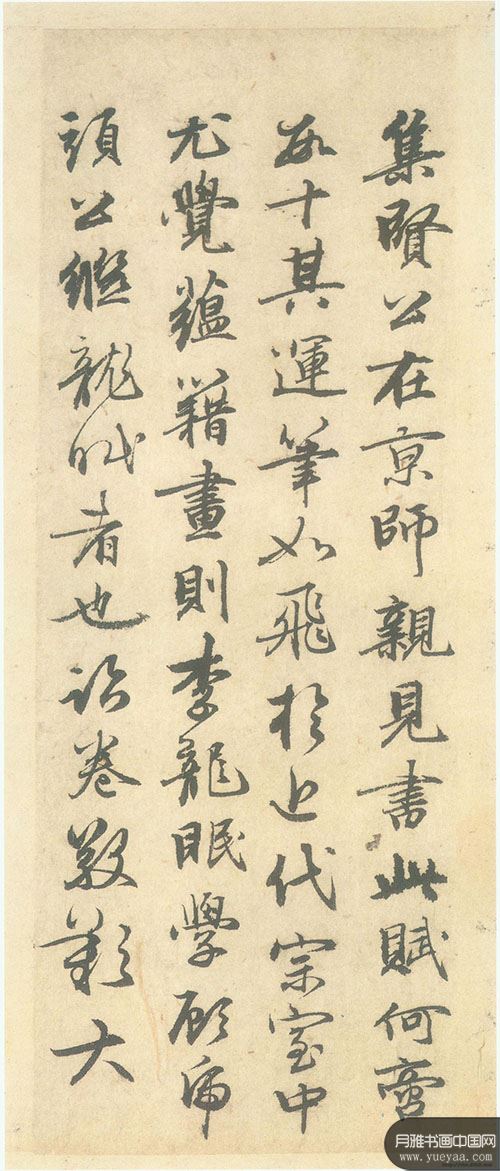 集賢公在京師親見書此賦何啻
數十其運筆如飛於近代宗室中
尤覺蘊藉畫則李龍眠學顧虎
頭公繼龍眠者也臨卷敬歎大
月雅书画中国网
www.yueyaa.com